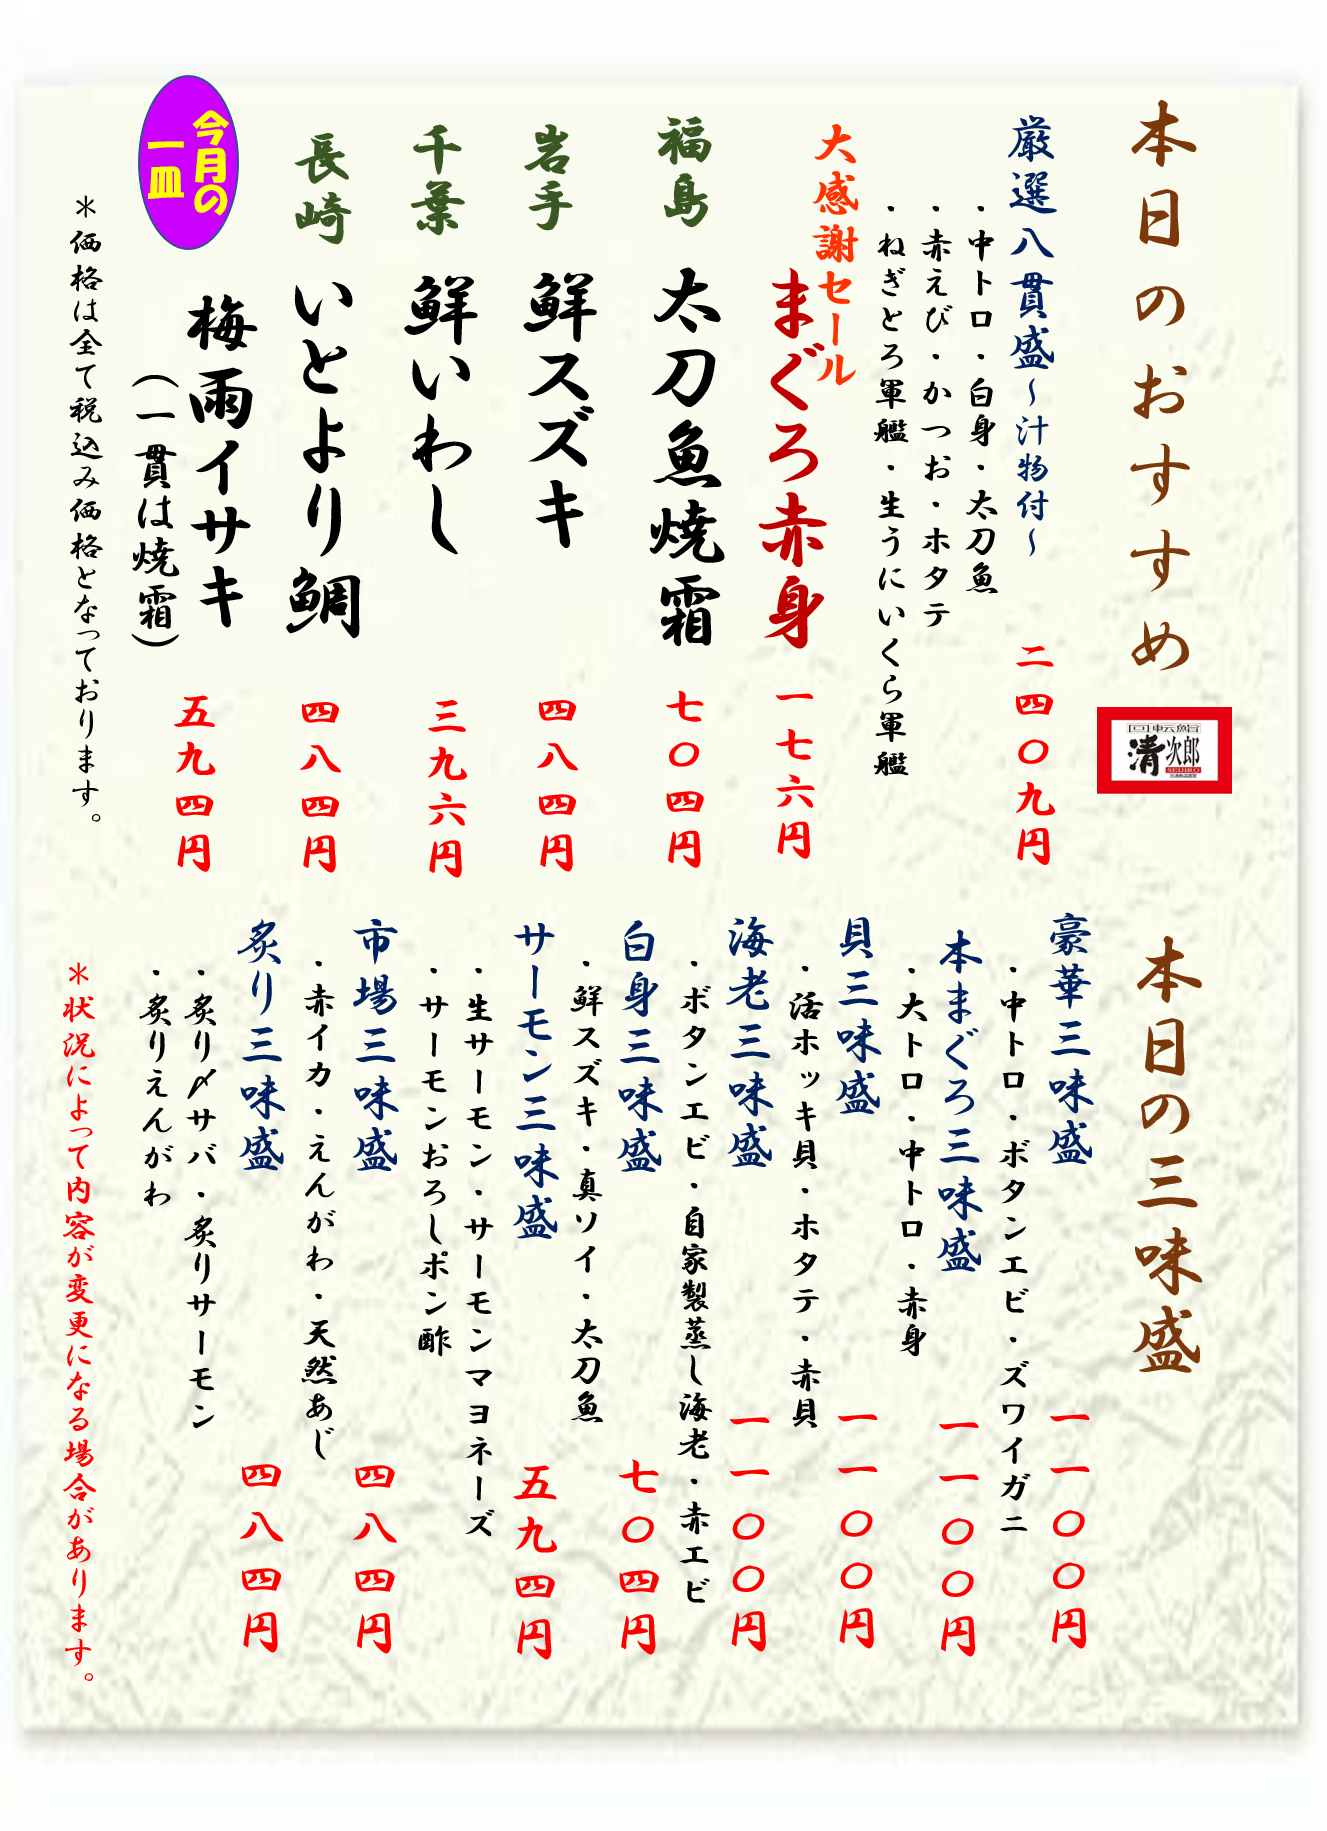 本日のおすすめ
回転鮨
清次郎
SEIJIRO
厳選八貫盛～汁物付～
二四〇九円
・中トロ・白身・太刀魚
・赤えび・かつお・ホタテ
・ねぎとろ軍艦・生うにいくら軍艦
大感謝セール
まぐろ赤身
一七六円
福島
太刀魚焼霜
七〇四円
岩手
鮮スズキ
四八四円
千葉
鮮いわし
三九六円
長崎
いとより鯛
四八四円
今月の
一皿
梅雨イサキ
（一貫は焼霜）
五九四円
＊価格は全て税込み価格となっております。
本日の三味盛
豪華三味盛
一一〇〇円
・中トロ・ボタンエビ・ズワイガニ
本まぐろ三味盛
一一〇〇円
・大トロ・中トロ・赤身
貝三味盛
一一〇〇円
・活ホッキ貝・ホタテ・赤貝
海老三味盛
一一〇〇円
・ボタンエビ・自家製蒸し海老・赤エビ
白身三味盛
七〇四円
・鮮スズキ・真ソイ・太刀魚
サーモン三味盛
五九四円
・生サーモン・サーモンマヨネーズ
・サーモンおろしポン酢
市場三味盛
四八四円
・赤イカ・えんがわ・天然あじ
炙り三味盛
四八四円
・炙り〆サバ・炙りサーモン
・炙りえんがわ
＊状況によって内容が変更になる場合があります。